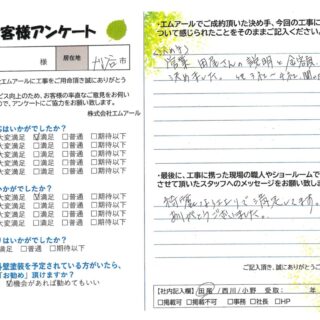 客様アンケート
様 居住地 市
エムアールに工事をご用命頂き誠にありがとう
ビス向上のため、お客様の率直なご意見をお伺い
ので、アンケートにご協力をお願い致します。
株式会社エムアール
はいかがでしたか?
大変満足 ☑満足 □普通 □期待以下
大変満足 □満足 □普通 □期待以下
大変満足 □満足 □普通 □期待以下
いかがでしたか?
大変満足 ☑満足 □普通 □期待以下
大変満足 □満足 □普通 □期待以下
大変満足 □満足 □普通 □期待以下
大変満足 □満足 □普通 □期待以下
はいかがでしたか?
満足 □普通 □期待以下
外壁塗装を予定されている方がいたら、
「お勧め」頂けますか?
機会があれば勧めてもいい
・エムアールでご成約頂いた決め手、今回の工事に
ついて感じられたことをそのままご記入ください。
営業 田尾さんの説明と
決めました。
・最後に、工事に携った現場の職人やショールームで
させて頂いたスタッフへのメッセージをお願い致し
綺麗に
ありがとうございました。
ご記入頂き、誠にありがとうご
【社内記入欄】 田尾/西川/小野 受取: 年
□掲載可 □掲載不可 □事務 □社長 □HP